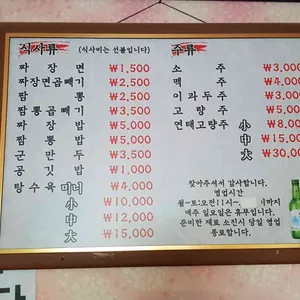 식사류 (식사비는 선불입니다)
짜장면 ₩1,500
짜장면곱빼기 ₩2,500
짬뽕 ₩2,500
짬뽕곱빼기 ₩3,500
짜장밥 ₩5,000
짬뽕밥 ₩5,000
군만두 ₩3,500
공깃밥 ₩1,000
탕수육 미니 ₩4,000
小 ₩10,000
中 ₩12,000
大 ₩15,000
주류
소주 ₩3,000
맥주 ₩4,000
이과두주 ₩3,000
고량주 ₩5,000
연태고량주 小 ₩8,000
中 ₩15,000
大 ₩30,000
찾아주셔서 감사합니다.
영업시간
월~토:오전11시~ 시까지
매주 일요일은 휴무입니다.
준비한 재료 소진시 당일 영업
종료합니다.